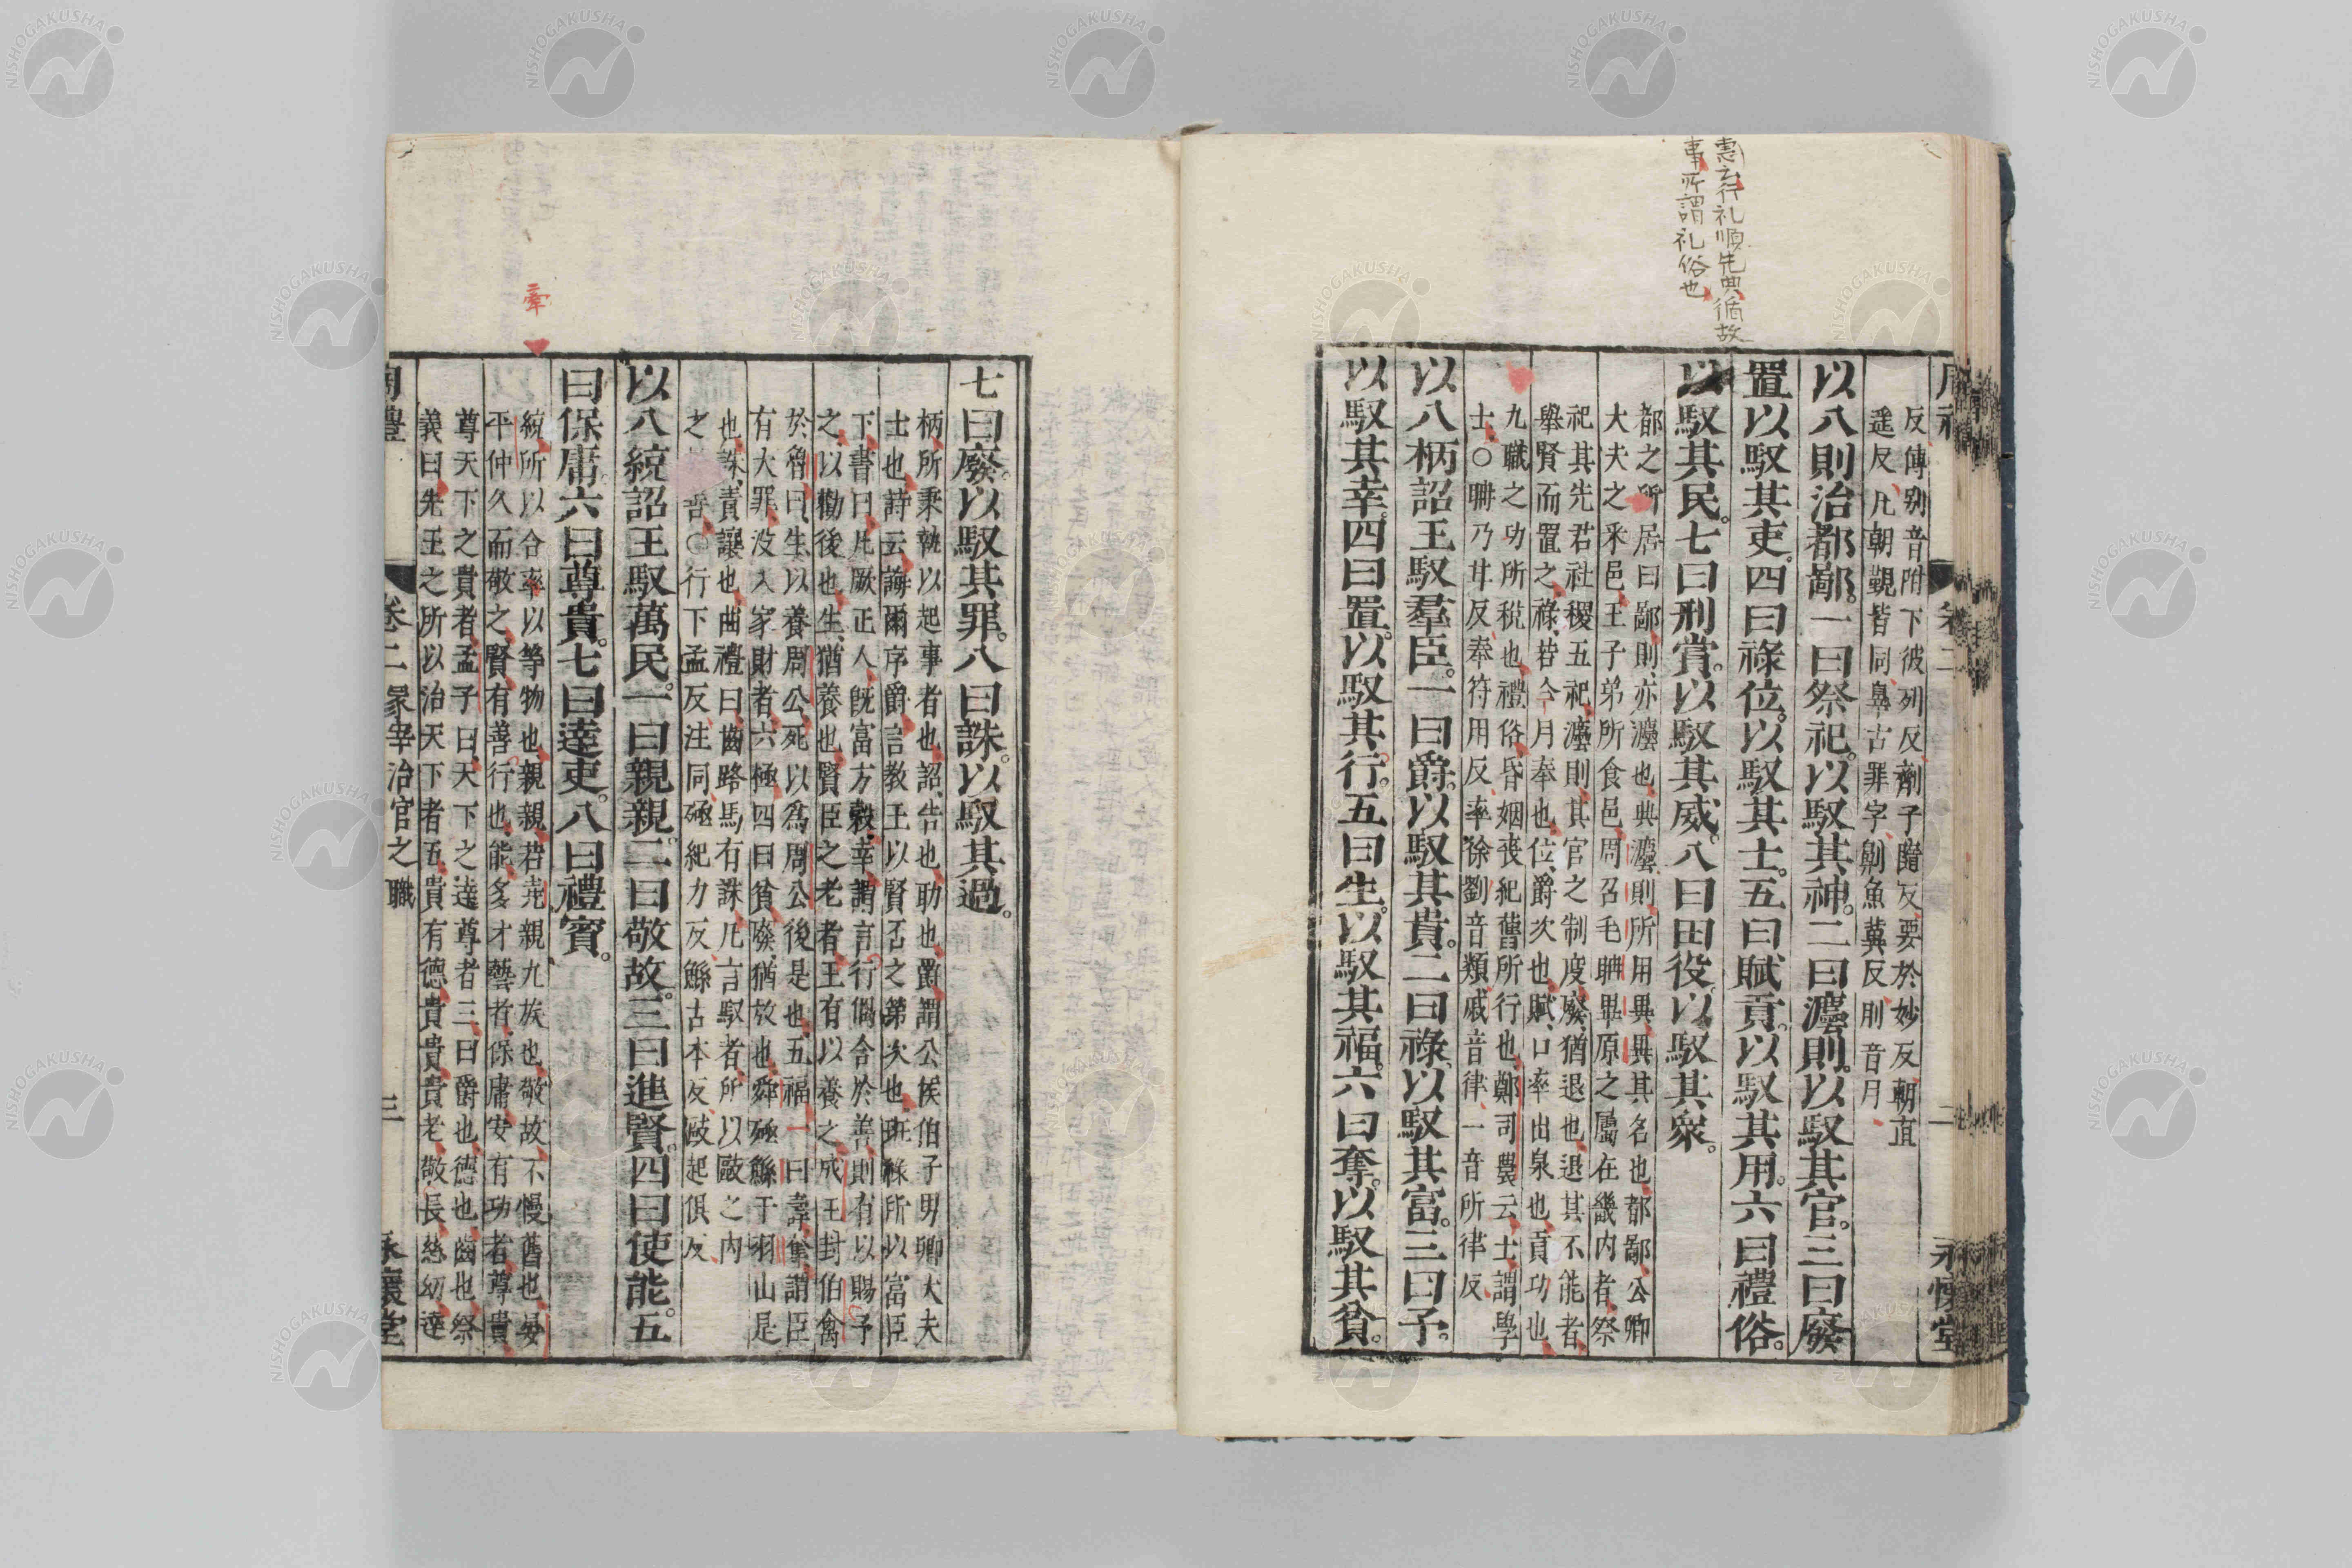 憲云行礼順先典循故
事所謂礼俗也
周禮
卷二
二
永懷堂
反傅別音附下彼列反劑子隨反要於妙反朝直
遥反凡朝覲皆同辠古罪字劓魚冀反刖音月
以八則治都鄙一曰祭祀以馭其神二曰灋則以馭其官三曰廢
置以馭其吏四曰祿位以馭其士五曰賦貢以馭其用六曰禮俗
以馭其民七曰刑賞以馭其威八曰田役以馭其衆
都之所居曰鄙則亦灋也典灋則所用異異其名也都鄙公卿
大夫之采邑王子弟所食邑周召毛聃畢原之屬在畿内者祭
祀其先君社稷五祀灋則其官之制度廢猶退也退其不能者
舉賢而置之祿若今月奉也位爵次也賦口率出泉也貢功也
九職之功所稅也禮俗昏姻喪紀舊所行也鄭司農云士謂學
士○聃乃甘反奉符用反率徐劉音類戚音律一音所律反
以八柄詔王馭羣臣一曰爵以馭其貴二曰祿以馭其富三曰予
以馭其幸四曰置以馭其行五曰生以馭其福六曰奪以馭其貧
七曰廢以馭其罪八曰誅以馭其過
柄所秉執以起事者也詔告也助也爵謂公侯伯子男卿大夫
士也詩云誨爾序爵言教王以賢否之第次也班祿所以富臣
下書曰凡厥正人旣富方穀幸謂言行偶合於善則有以賜予
之以勸後也生猶養也賢臣之老者王有以養之成王封伯禽
於魯曰生以養周公死以爲周公後是也五福一曰壽奪謂臣
有大罪沒入家財者六極四曰貧廢猶放也舜殛鯀于羽山是
也誅責讓也曲禮曰齒路馬有誅凡言馭者所以敺之内
之 善○行下孟反注同殛紀力反鯀古本反敺起俱反
以八統詔王馭萬民一曰親親二曰敬故三曰進賢四曰使能五
曰保庸六曰尊貴七曰達吏八曰禮賓
牽
統所以合牽以等物也親親若堯親九族也敬故不慢舊也晏
平仲久而敬之賢有善行也能多才藝者保庸安有功者尊貴
尊天下之貴者孟子曰天下之達尊者三曰爵也德也齒也祭
義曰先王之所以治天下者五貴有德貴貴貴老敬長慈幼達
周禮
卷二 冢宰治官之職
三
永懷堂